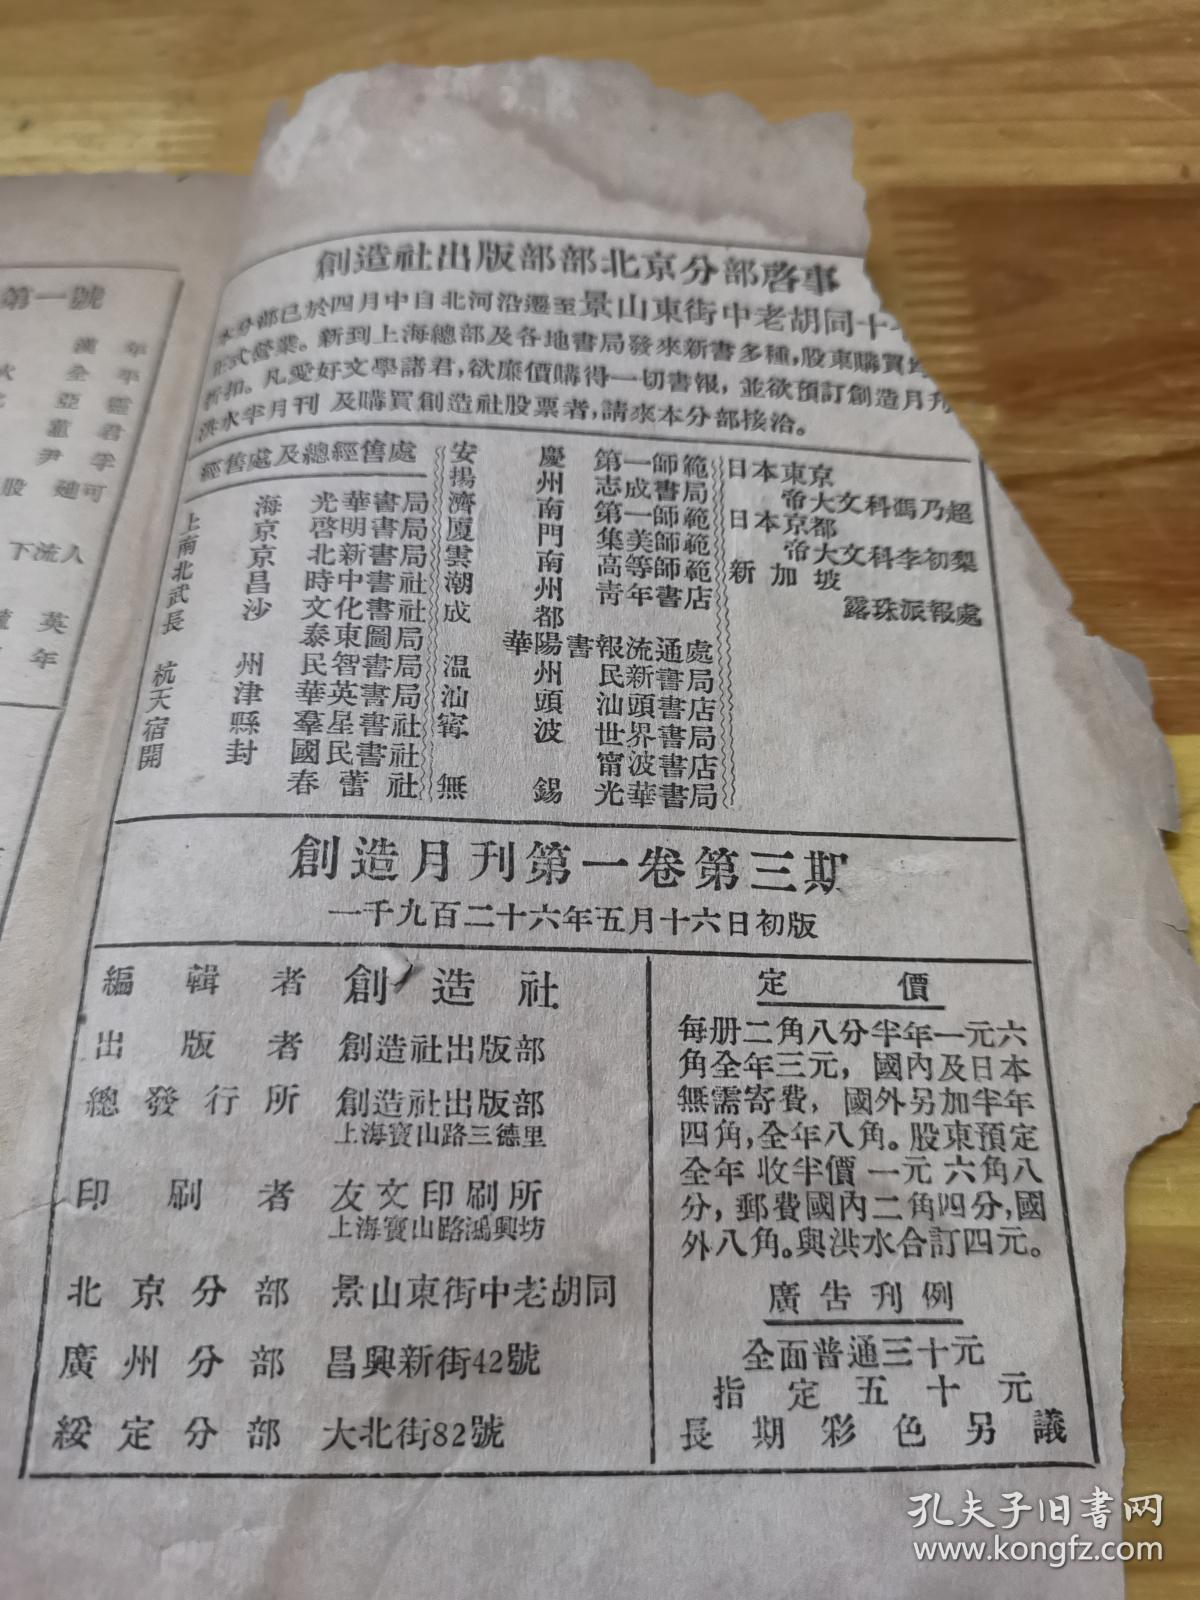 第一號
漢年
全平
亞靈
董君
尹苹
股 建可
下流人
英
年
創造社出版部部北京分部啓事
本分部已於四月中自北河沿遷至景山東街中老胡同十
正式營業。新到上海總部及各地書局發來新書多種，股東購買
折扣。凡愛好文學諸君，欲廉價購得一切書報，並欲預訂創造月刊
洪水半月刊 及購買創造社股票者，請來本分部接洽。
經售處及總經售處
上海 光華書局
南京 啓明書局
北京 北新書局
武昌 時中書社
長沙 文化書社
泰東圖局
杭州 民智書局
天津 華英書局
宿縣 羣星書社
開封 國民書社
春蕾社
安慶 第一師範
揚州 志成書局
濟南 第一師範
廈門 集美師範
雲南 高等師範
潮州 青年書店
成都
華陽書報流通處
溫州 民新書局
汕頭 汕頭書店
寗波 世界書局
甯波書店
無錫 光華書局
日本東京
帝大文科馮乃超
日本京都
帝大文科李初梨
新加坡
露珠派報處
創造月刊第一卷第三期
一千九百二十六年五月十六日初版
編輯者 創造社
出版者 創造社出版部
總發行所 創造社出版部
上海寶山路三德里
印刷者 友文印刷所
上海寶山路鴻興坊
北京分部 景山東街中老胡同
廣州分部 昌興新街42號
綏定分部 大北街82號
定價
每册二角八分半年一元六
角全年三元，國內及日本
無需寄費，國外另加半年
四角，全年八角。股東預定
全年 收半價 一元 六角八
分，郵費國內二角四分，國
外八角。與洪水合訂四元。
廣告刊例
全面普通三十元
指定五十元
長期彩色另議
孔夫子旧书网
www.kongfz.com